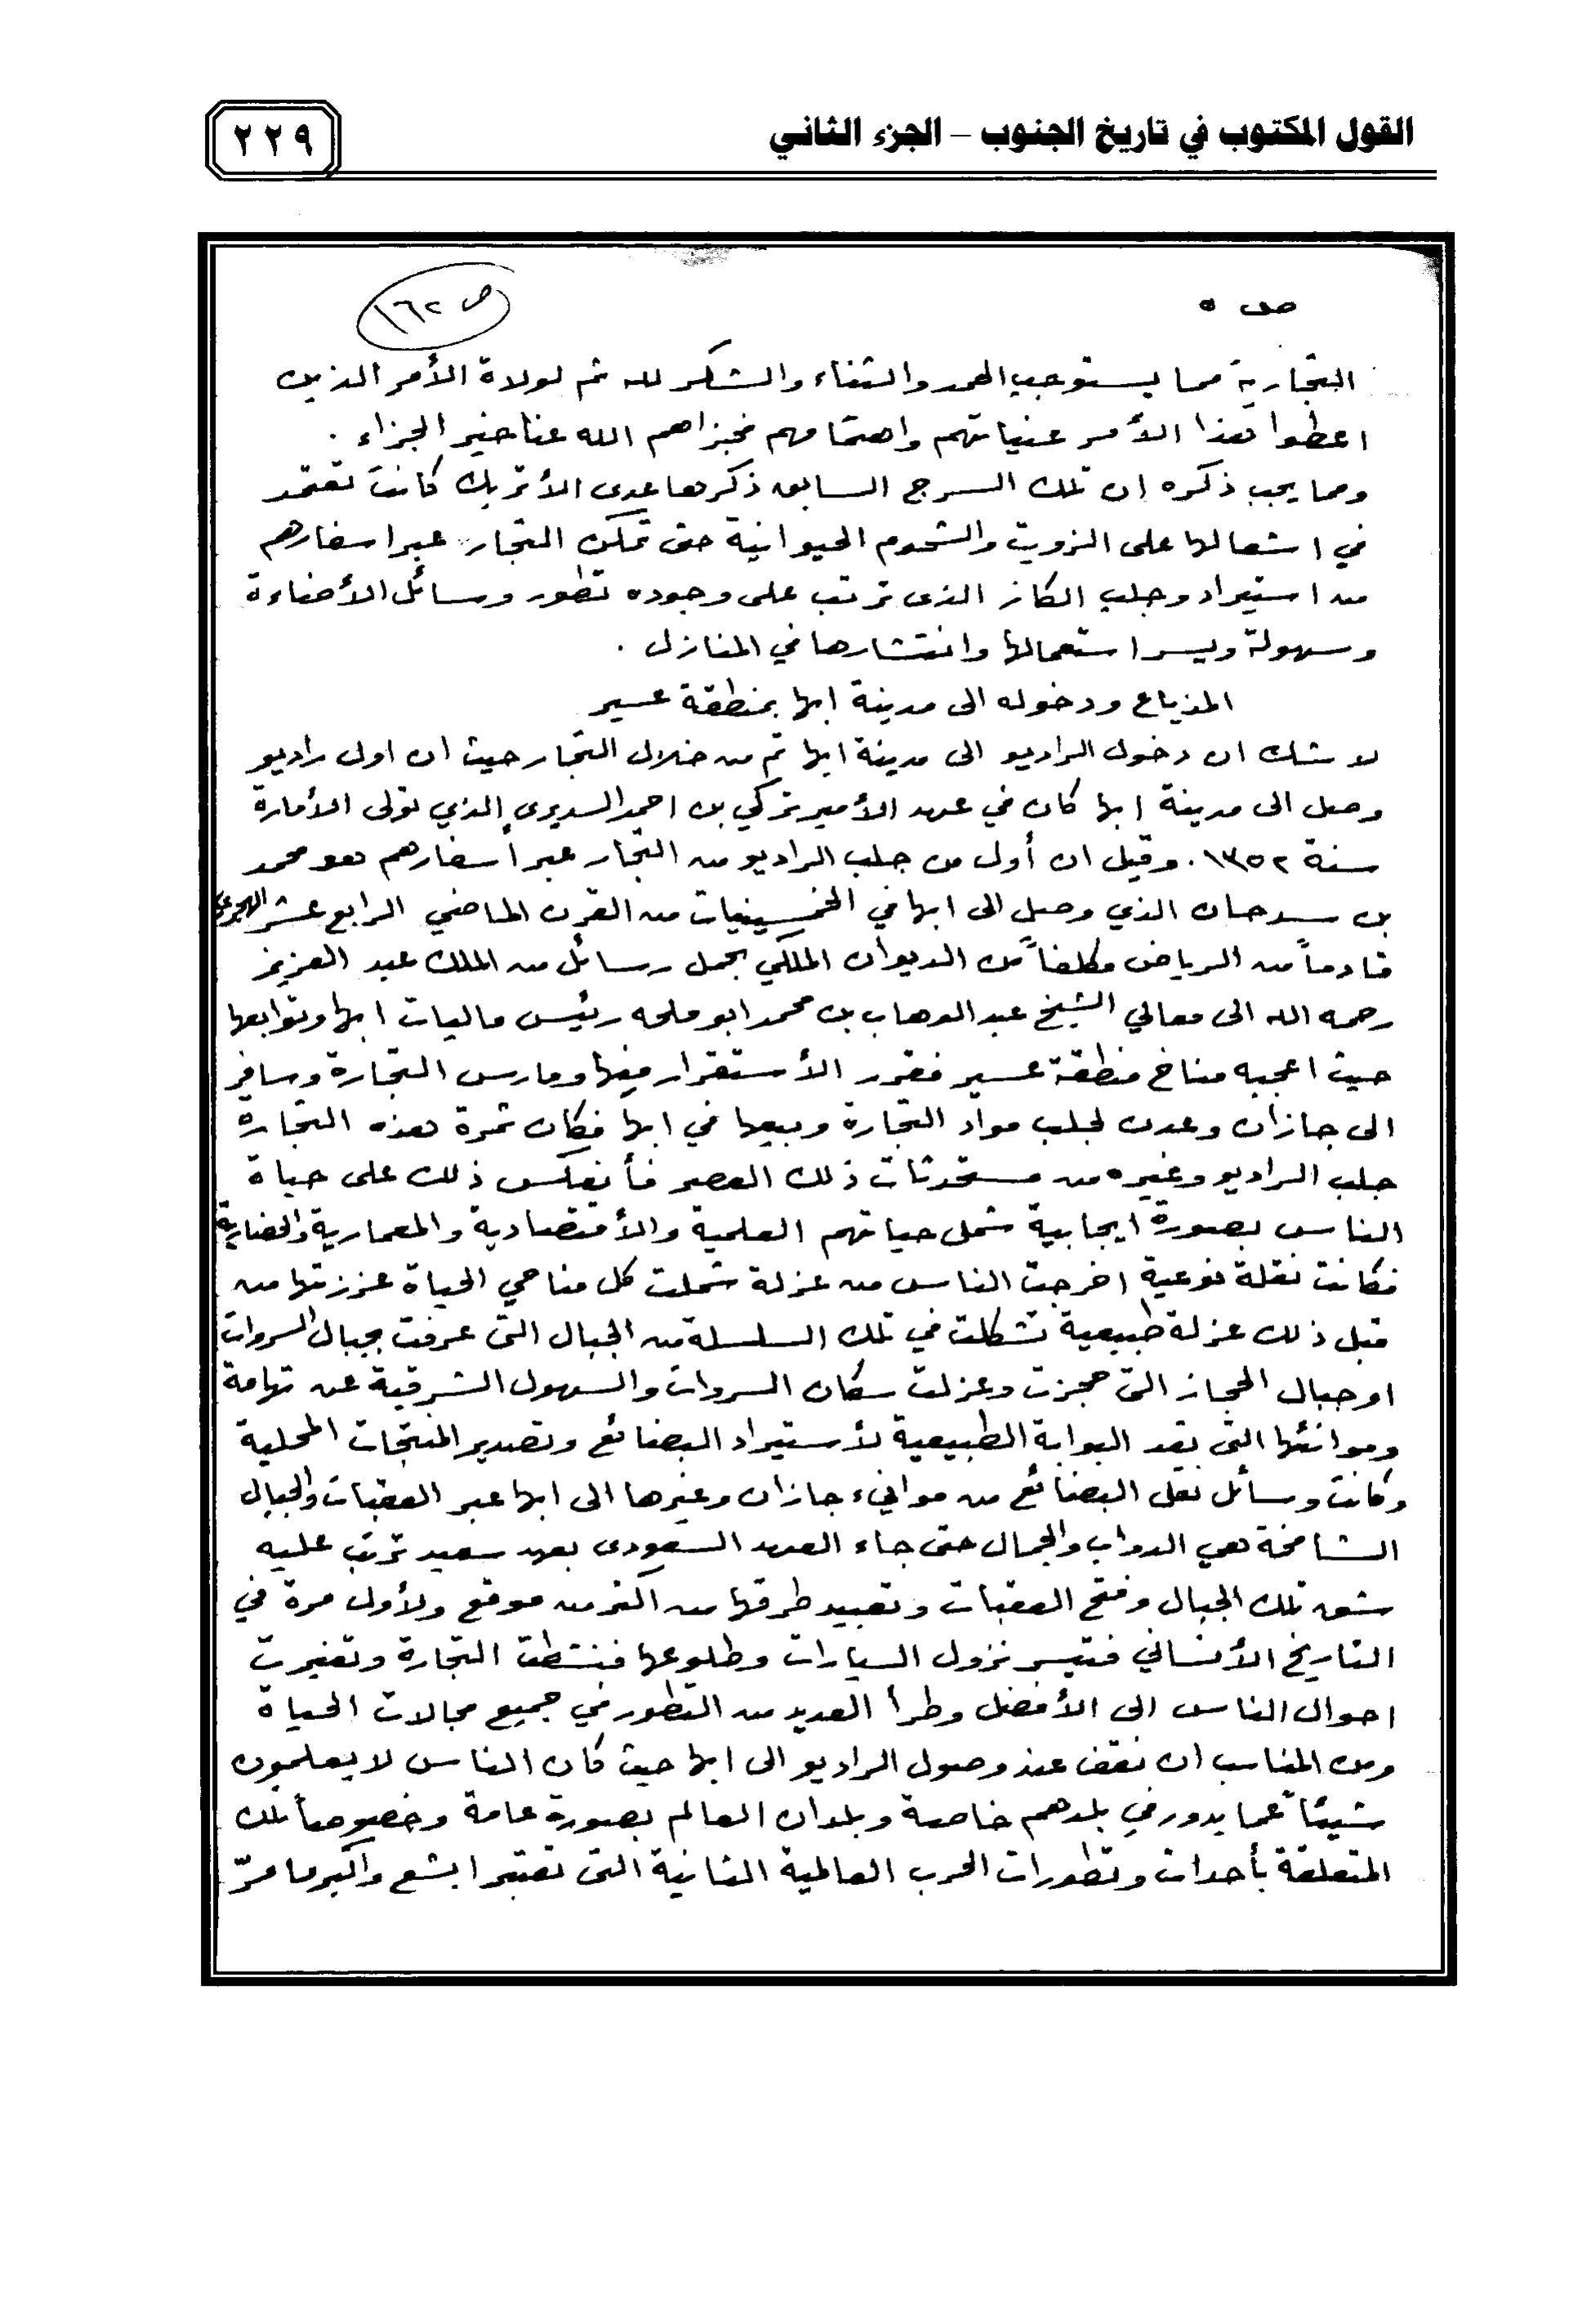 القول المكتوب في تاريخ الجنوب – الجزء الثاني
٢٢٩
ص ٥
ص ١٦٢
التجارية مما يستوجب الحمد والثناء والشكر لله ثم لولاة الأمر الذين
اعطوا هذا الأمر عنياتهم واهتمامهم فجزاهم الله عنا خير الجزاء .
ومما يجب ذكره ان تلك السرج السابق ذكرها عدى الأتريك كانت تعتمد
في اشعالها على الزويت والشحوم الحيوانية حتى تمكن التجار عبر اسفارهم
من استيراد وجلب الكاز الذى ترتب على وجوده تطور وسائل الأضاءة
وسهولة ويسر استعمالها وانتشارها في المنازل .
المذياع ودخوله الى مدينة ابها بمنطقة عسير
لا شك ان دخول الراديو الى مدينة ابها تم من خلال التجار حيث ان اول راديو
وصل الى مدينة ابها كان في عهد الأمير تركي بن احمد السديرى الذي تولى الأمارة
سنة ١٣٥٢. وقيل ان أول من جلب الراديو من التجار عبر اسفارهم هو محمد
بن سرحان الذي وصل الى ابها في الخمسينيات من القرن الماضي الرابع عشر الهجري
قادماً من الرياض مكلفاً من الديوان الملكي بحمل رسائل من الملك عبد العزيز
رحمه الله الى معالي الشيخ عبد الوهاب بن محمد ابو ملحه رئيس ماليات ابها وتوابعها
حيث اعجبه مناخ منطقة عسير فقرر الأستقرار فيها ومارس التجارة وسافر
الى جازان وعدن لجلب مواد التجارة وبيعها في ابها فكان ثمرة هذه التجارة
جلب الراديو وغيره من مستحدثات ذلك العصر فأنعكس ذلك على حياة
الناس بصورة ايجابية شمل حياتهم العلمية والأقتصادية والمعمارية والحضارية
فكانت نقلة نوعية اخرجت الناس من عزلة شملت كل مناحي الحياة عززتها من
قبل ذلك عزلة طبيعية تشكلت في تلك السلسلة من الجبال التى عرفت بجبال السروات
او جبال الحجاز التى حجزت وعزلت سكان السروات والسهول الشرقية عن تهامة
وموانئها التى تعد البوابة الطبيعية لأستيراد البضائع وتصدير المنتجات المحلية
وكانت وسائل نقل البضائع من موانيء جازان وغيرها الى ابها عبر العقبات والجبال
الشامخة هي الدواب والجمال حتى جاء العهد السعودى بعهد سعيد ترتب عليه
شق تلك الجبال وفتح العقبات وتعبيد طرقها من اكثر من موقع ولأول مرة في
التاريخ الأنساني فتيسر نزول السيارات وطلوعها فنشطت التجارة وتغيرت
احوال الناس الى الأفضل وطرأ العديد من التطور في جميع مجالات الحياة
ومن المناسب ان نقف عند وصول الراديو الى ابها حيث كان الناس لا يعلمون
شيئاً عما يدور في بلدهم خاصة وبلدان العالم بصورة عامة وخصوصاً تلك
المتعلقة بأحداث وتطورات الحرب العالمية الثانية التى تعتبر ابشع واكبر ما مرّ